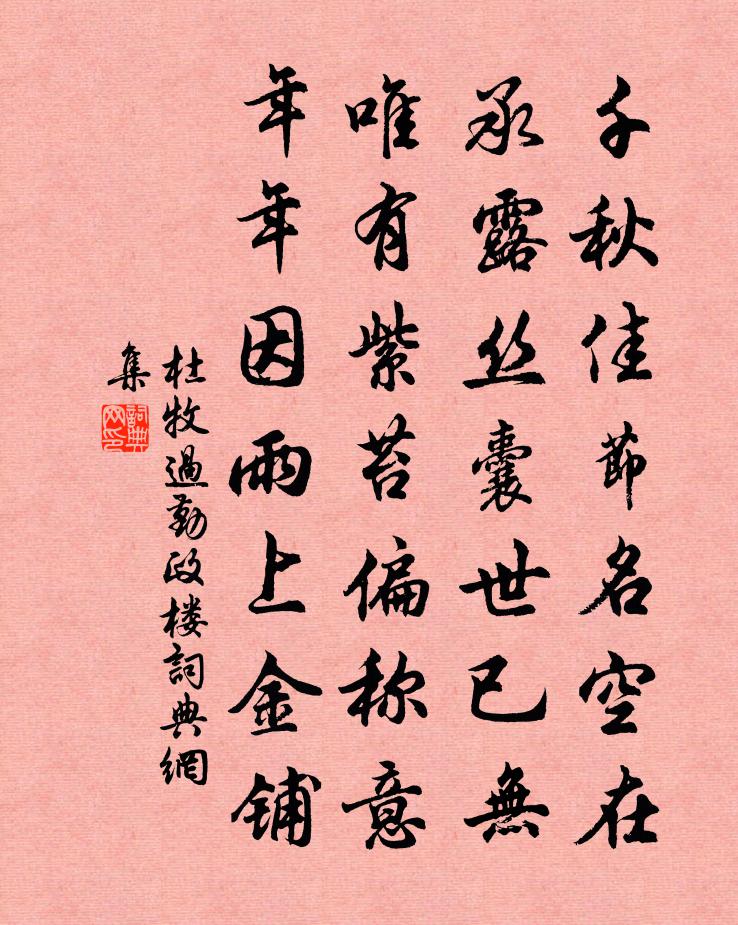 千秋佳節名空在
承露丝囊世已無
唯有紫苔偏称意
年年因雨上金铺
杜牧過勤政楼詞典網
集
詞典网印